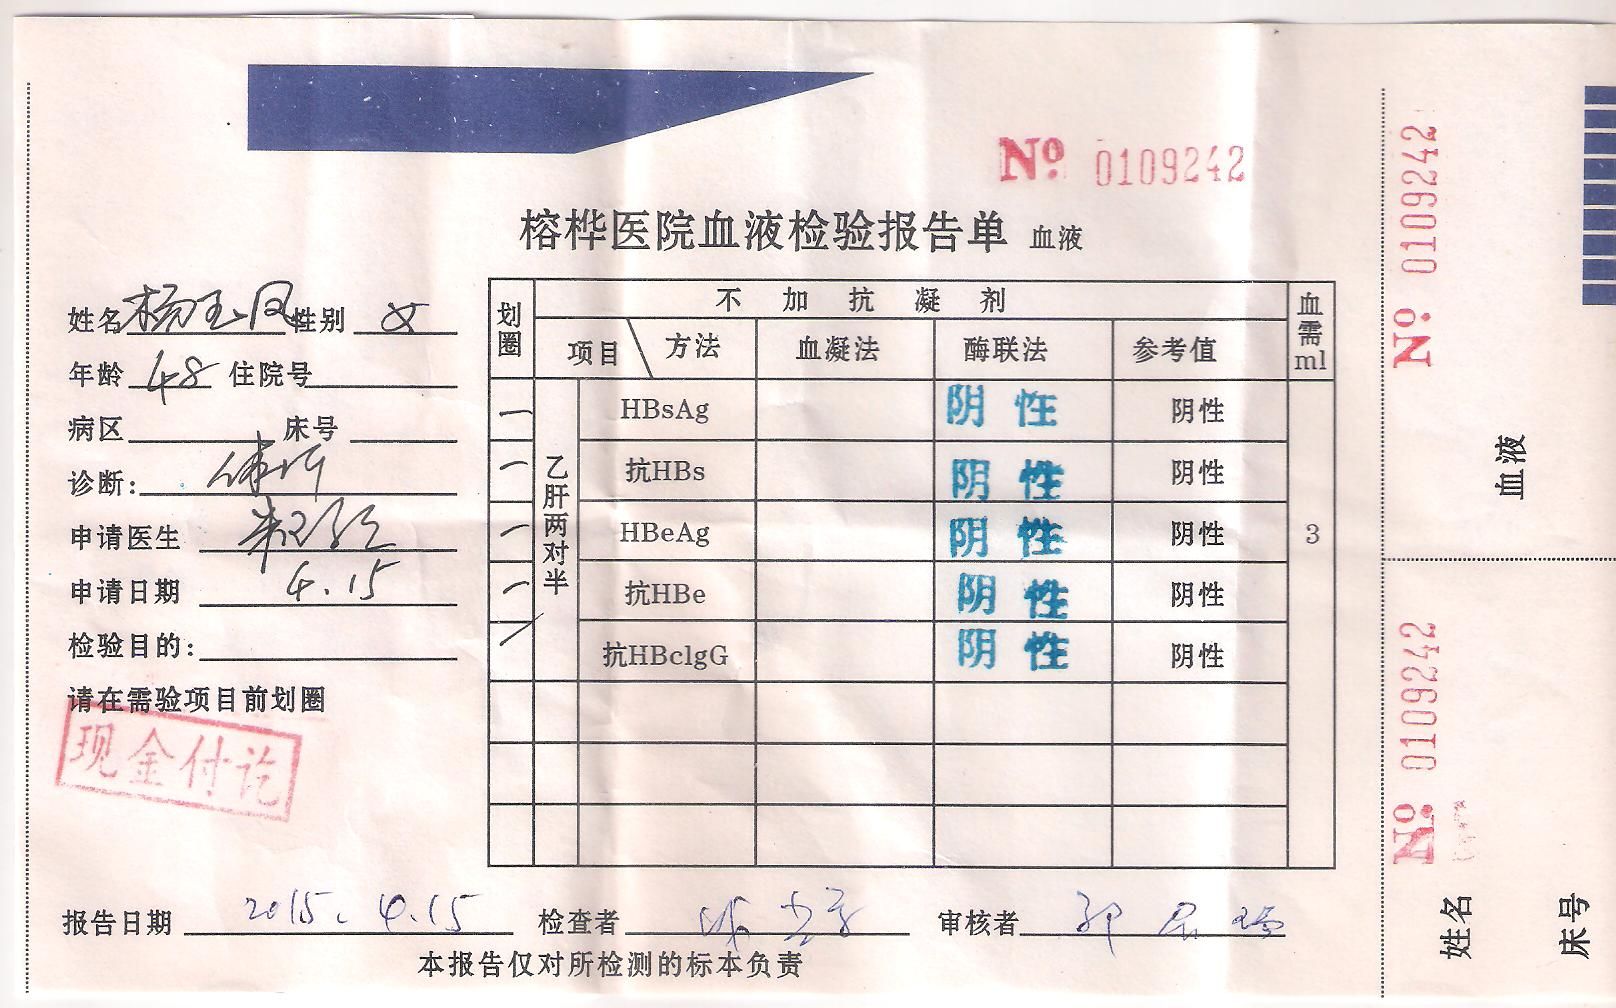 № 0109242
榕桦医院血液检验报告单 血液
姓名 杨玉凤 性别 女
年龄 48 住院号
病区 床号
诊断: 体检
申请医生
申请日期 4.15
检验目的:
请在需验项目前划圈
现金付讫
划圈 不加抗凝剂 血需ml
项目 方法 血凝法 酶联法 参考值
乙肝两对半
HBsAg 阴性 阴性
抗HBs 阴性 阴性
HBeAg 阴性 阴性
抗HBe 阴性 阴性
抗HBclgG 阴性 阴性
3
报告日期 2015.4.15 检查者 审核者
本报告仅对所检测的标本负责
№ 0109242
血液
№ 0109242
姓名
床号